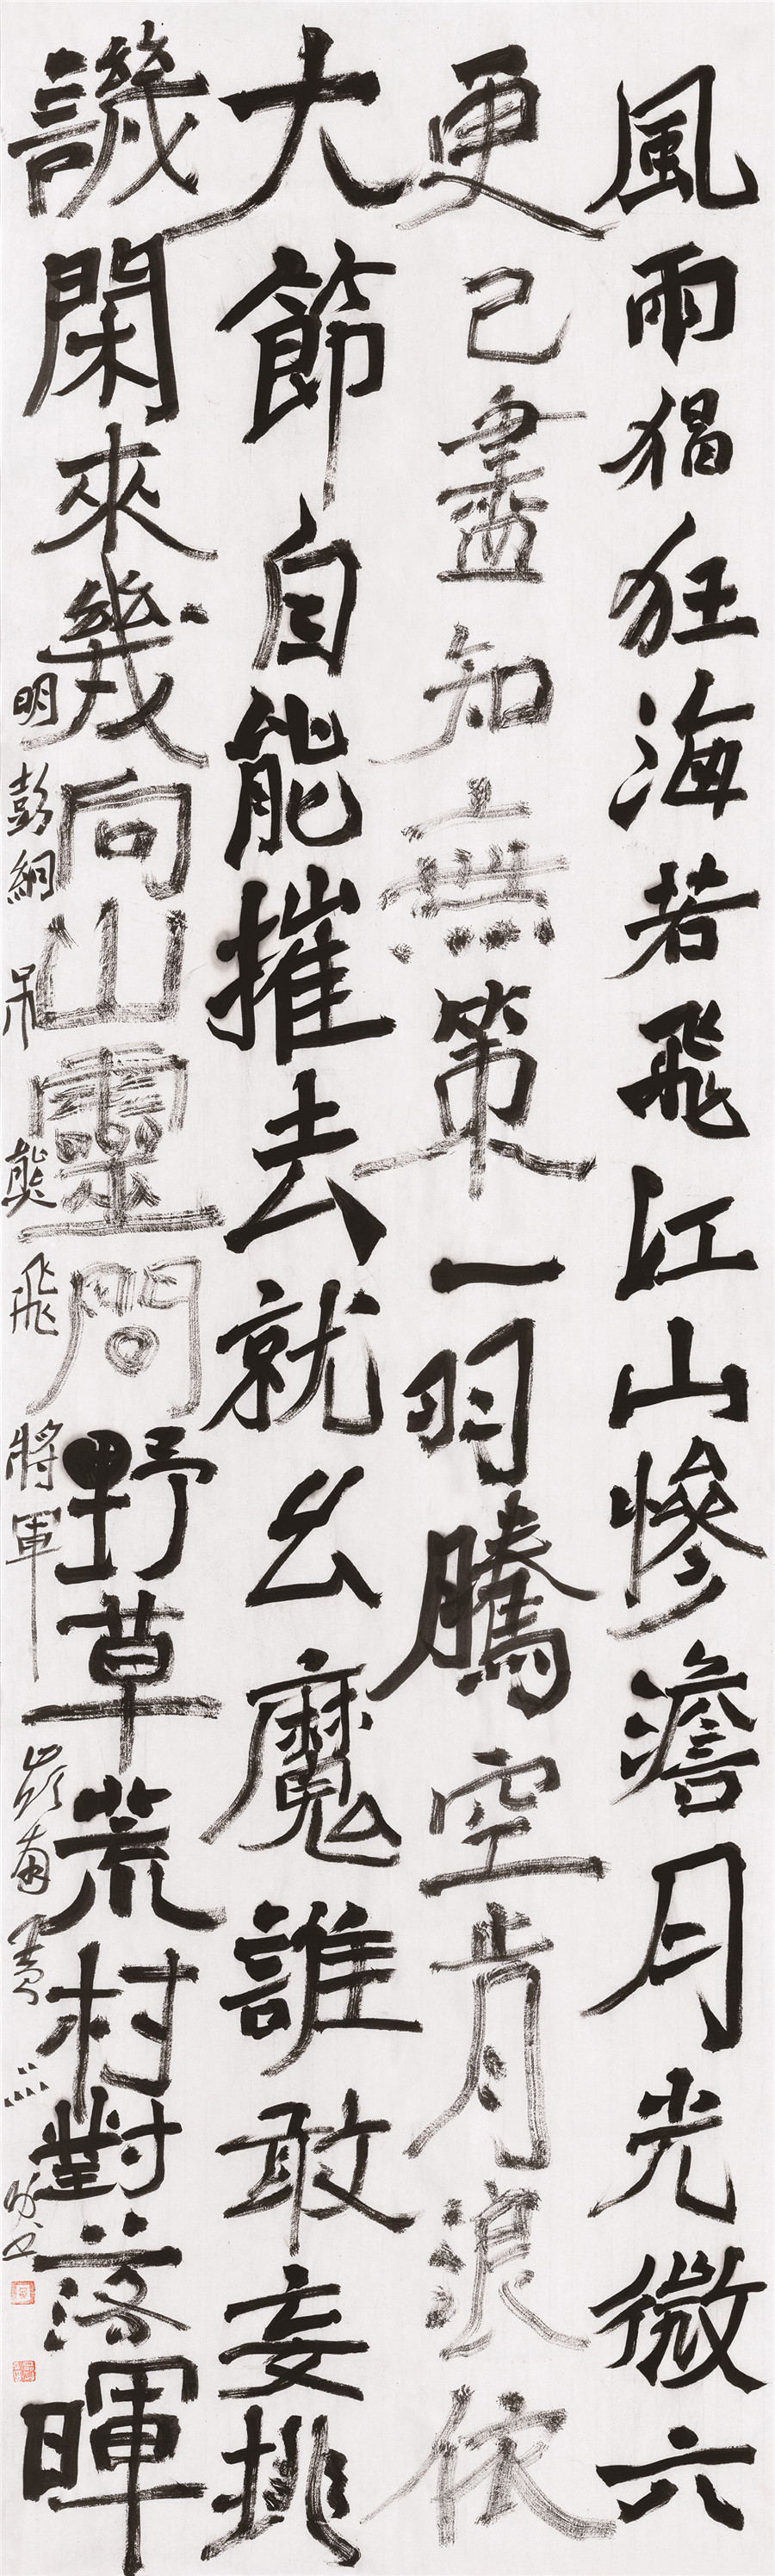 風雨猖狂海若飛江山慘澹月光微六
更已盡知無策一羽騰空肯浪依
大節自能摧去就么魔誰敢妄挑
譏閑來幾向山靈問野草荒村對落暉
明彭絅吊熊飛將軍嶺南黃